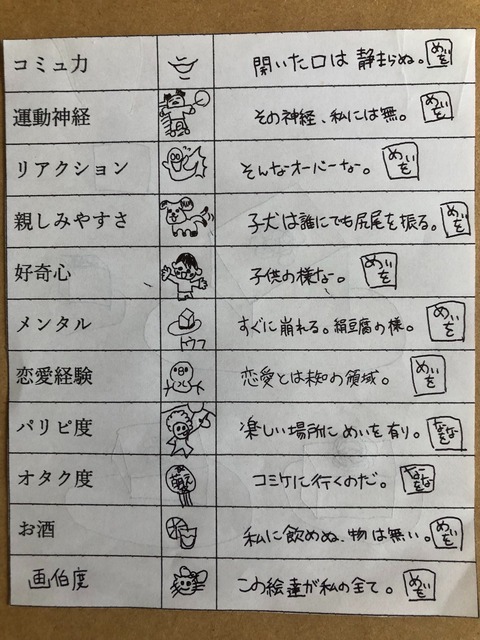 コミュ力 開いた口は静まらぬ。めいを
運動神経 その神経、私には無。めいを
リアクション そんなオーバーな。めいを
親しみやすさ 子犬は誰にでも尻尾を振る。めいを
好奇心 子供の様な。めいを
メンタル トウフ すぐに崩れる。絹豆腐の様。めいを
恋愛経験 恋愛とは未知の領域。めいを
パリピ度 楽しい場所にめいを有り。
オタク度 萌え コミケに行くのだ。
お酒 私に飲めぬ、物は無い。めいを
画伯度 この絵達が私の全て。めいを